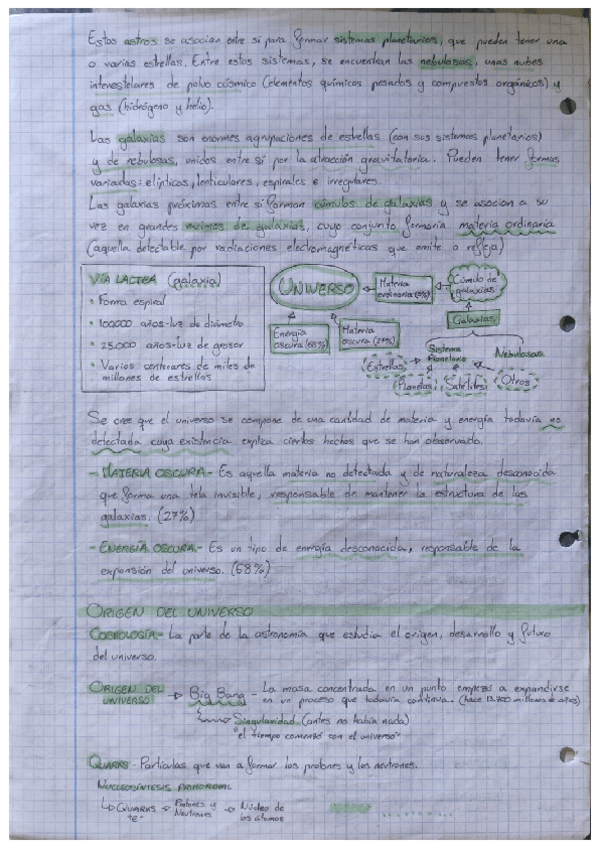 Estos astros se asocian entre sí para formar sistemas planetarios, que pueden tener una
o varias estrellas. Entre estos sistemas, se encuentran las nebulosas, unas nubes
interestelares de polvo cósmico (elementos químicos pesados y compuestos orgánicos) y
gas (hidrógeno y helio).
Las galaxias son enormes agrupaciones de estrellas (con sus sistemas planetarios)
y de nebulosas, unidos entre sí por la atracción gravitatoria. Pueden tener formas
variadas: elípticas, lenticulares, espirales e irregulares.
Las galaxias próximas entre sí forman cúmulos de galaxias y se asocian a su
vez en grandes racimos de galaxias, cuyo conjunto formaría materia ordinaria
(aquella detectable por radiaciones electromagnéticas que emite o refleja)
VÍA LACTEA (galaxia)
• Forma espiral
• 100000 años-luz de diámetro
• 25.000 años-luz de grosor
• Varios centenares de miles de
millones de estrellas
UNIVERSO
Materia
ordinaria (5%)
Cúmulo de
galaxias
Energía
oscura (68%)
Materia
oscura (27%)
Galaxias
Sistema
Planetario
Nebulosas
Estrellas
Planetas
Satélites
Otros
Se cree que el universo se compone de una cantidad de materia y energía todavía no
detectada cuya existencia explica ciertos hechos que se han observado.
- MATERIA OSCURA.- Es aquella materia no detectada y de naturaleza desconocida
que forma una tela invisible, responsable de mantener la estructura de las
galaxias. (27%)
- ENERGÍA OSCURA.- Es un tipo de energía desconocida, responsable de la
expansión del universo. (68%)
ORIGEN DEL UNIVERSO
COSMOLOGÍA.- La parte de la astronomía que estudia el origen, desarrollo y futuro
del universo.
ORIGEN DEL
UNIVERSO
→ Big Bang - La masa concentrada en un punto empieza a expandirse
en un proceso que todavía continua. (hace 13.700 millones de años)
Singularidad (antes no había nada)
"el tiempo comenzó con el universo"
QUARKS - Partículas que van a formar los protones y los neutrones.
NUCLEOSÍNTESIS PRIMORDIAL
↳ QUARKS → Protones y → Núcleo de
Neutrones
los átomos